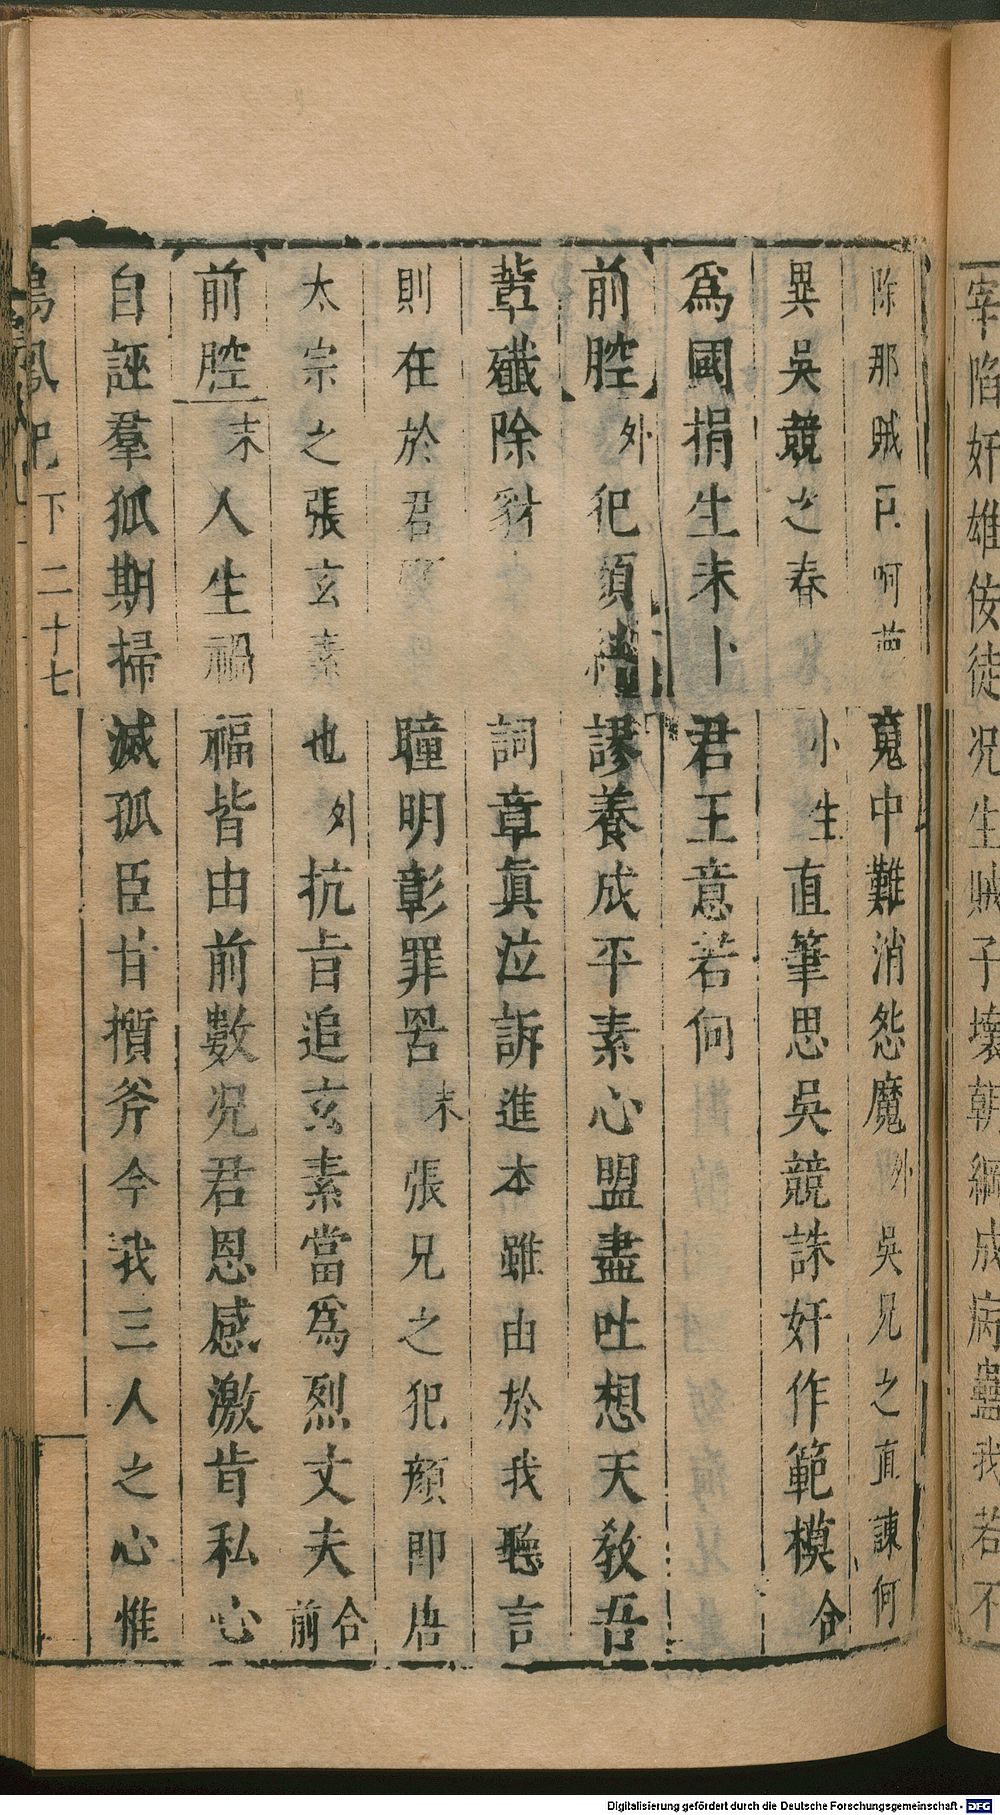 宰陷奸雄佞徒况生賊子壞朝綱成病蠱我若不
除那賊巨呵䓤䰟中難消怨魔外吳兄之直諫何
異吳競之春小生直筆思吳競誅奸作範模合
爲國捐生未卜君王意若何
前腔外犯須謬養成平素心盟盡吐想天敎吾
輩殲除豺詞章眞泣訴進本雖由於我聽言
則在於君瞳明彰罪罟末張兄之犯顔即唐
太宗之張玄素也外抗㫖追玄素當爲烈丈夫合前
前腔末人生禍福皆由前數况君恩感激肯私心
自誣羣狐期掃滅孤臣甘擯斧今我三人之心惟
鳳記 下 二十七
Digitalisierung gefördert durch die Deutsche Forschungsgemeinschaft - DFG